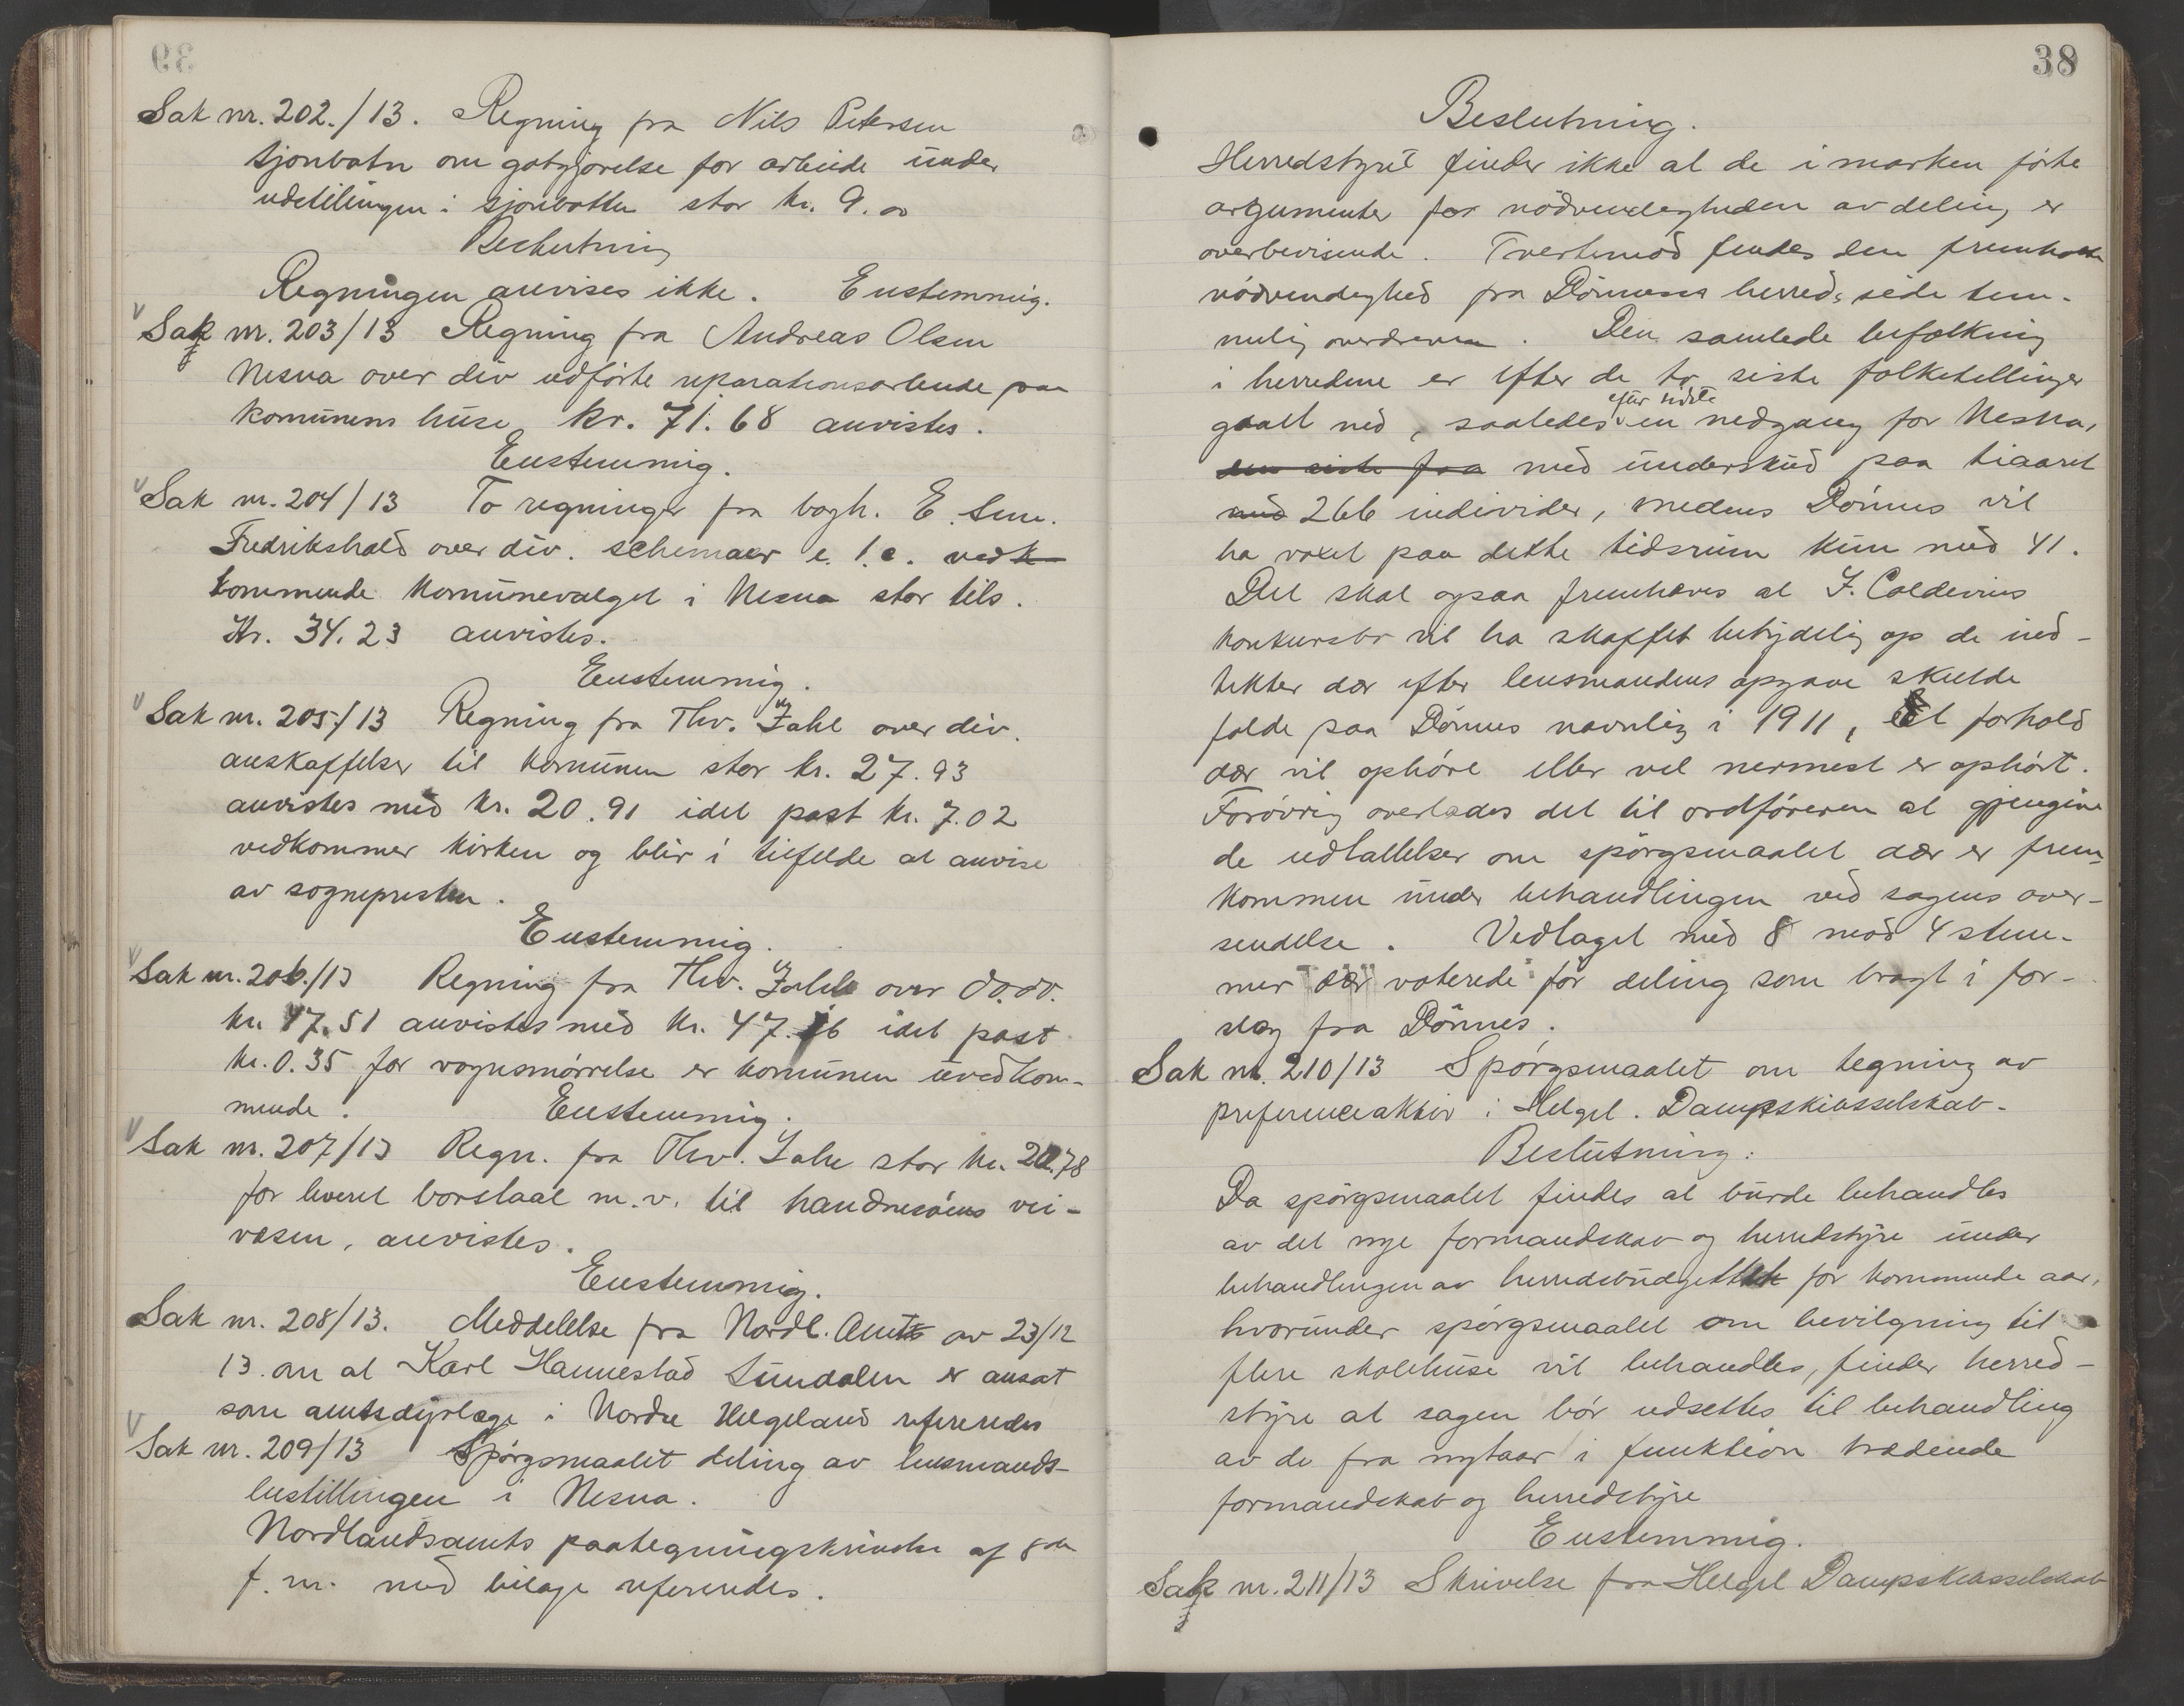 Sak nr. 202./13. Regning fra Nils Petersen
Sjonbotn om gotgjörelse for arbeide under
uddelingen i Sjonbotten stor kr. 9.00
Beslutning
Regningen anvises ikke. Enstemmig.
Sak nr. 203/13 Regning fra Andreas Olsen
Nesna over div udförte reparationsarbeide paa
komunens huse, kr. 71.68 anvistes.
Enstemmig.
Sak nr. 204/13 To regninger fra bogh. E. Sem.
Fredrikshald over div. schemaer e. l. c. vedk
kommende komunevalget i Nesna stor tils.
Kr. 34.23 anvistes.
Enstemmig.
Sak nr. 205/13 Regning fra Thv. Zahl over div.
anskaffelser til komunen stor kr. 27.93
anvistes med kr. 20.91 idet post kr. 7.02
vedkommer kirken og blir i tilfelde at anvise
av sognepresten.
Enstemmig.
Sak nr. 206/13 Regning fra Thv. Zahl over do.do.
kr. 47.51 anvistes med kr. 47.16 idet post
kr. 0.35 for vognsmörrelse er komunen uvedkom-
mende. Enstemmig.
Sak nr. 207/13 Regn. fra Thv. Zahl stor kr. 20.78
for levert borstaal m.v. til handnesöens vei-
væsen, anvistes.
Enstemmig.
Sak nr. 208/13. Meddelelse fra Nordl. Amt av 23/12
13. om at Karl Hannestad Sundalen er ansat
som amtsdyrlæge i Nordre Helgeland refereredes
Sak nr. 209/13 Spörgsmaalet deling av lensmands-
bestillingen i Nesna.
Nordlandsamts paategningskrivelse af 8de
f. m. med bilage refereredes.
38
Beslutning.
Herredstyret finder ikke at de i marken förte
argumenter for nödvendigheden av deling er
overbevisende. Tvertemod findes den fremholdte
nödvendighed fra Dönnes herreds side tem-
melig overdreven. Den samlede befolkning
i herredene er efter de to siste folketellinger
gaat ned, saaledes efter sidste en nedgang for Nesna,
den siste fra med underskud paa tiaaret
med 266 individer, medens Dönnes vil
ha voxet paa dette tidsrum kun med 41.
Det skal ogsaa fremhæves at J. Coldevins
konkursbo vil ha skaffet betydelig op de ind-
tekter der efter lensmandens opgave skulde
falde paa Dönnes navnlig i 1911, et forhold
der vil ophöre eller vel nermest er ophört.
Forövrig overlades det til ordföreren at gjengive
de udtallelser om spörgsmaalet der er frem-
kommen under behandlingen ved sagens over-
sendelse. Vedtaget med 8 mod 4 stem-
mer der voterede for deling som bragt i for-
slag fra Dönnes.
Sak nr. 210/13 Spörgsmaalet om tegning av
preferenceaktier i Helgel. Dampskibsselskab-
Beslutning:
Da spörgsmaalet findes at burde behandles
av det nye formandskav og herredstyre under
behandlingen av herredsbudgettet for kommende aar,
hvorunder spörgsmaalet om bevilgning til
flere skolehuse vil behandles, finder herred-
styre at sagen bör udsettes til behandling
av de fra nytaar i funktion trædende
formandskab og herredstyre
Enstemmig.
Sak nr. 211/13 Skrivelse fra Helgel Dampskibsselskab